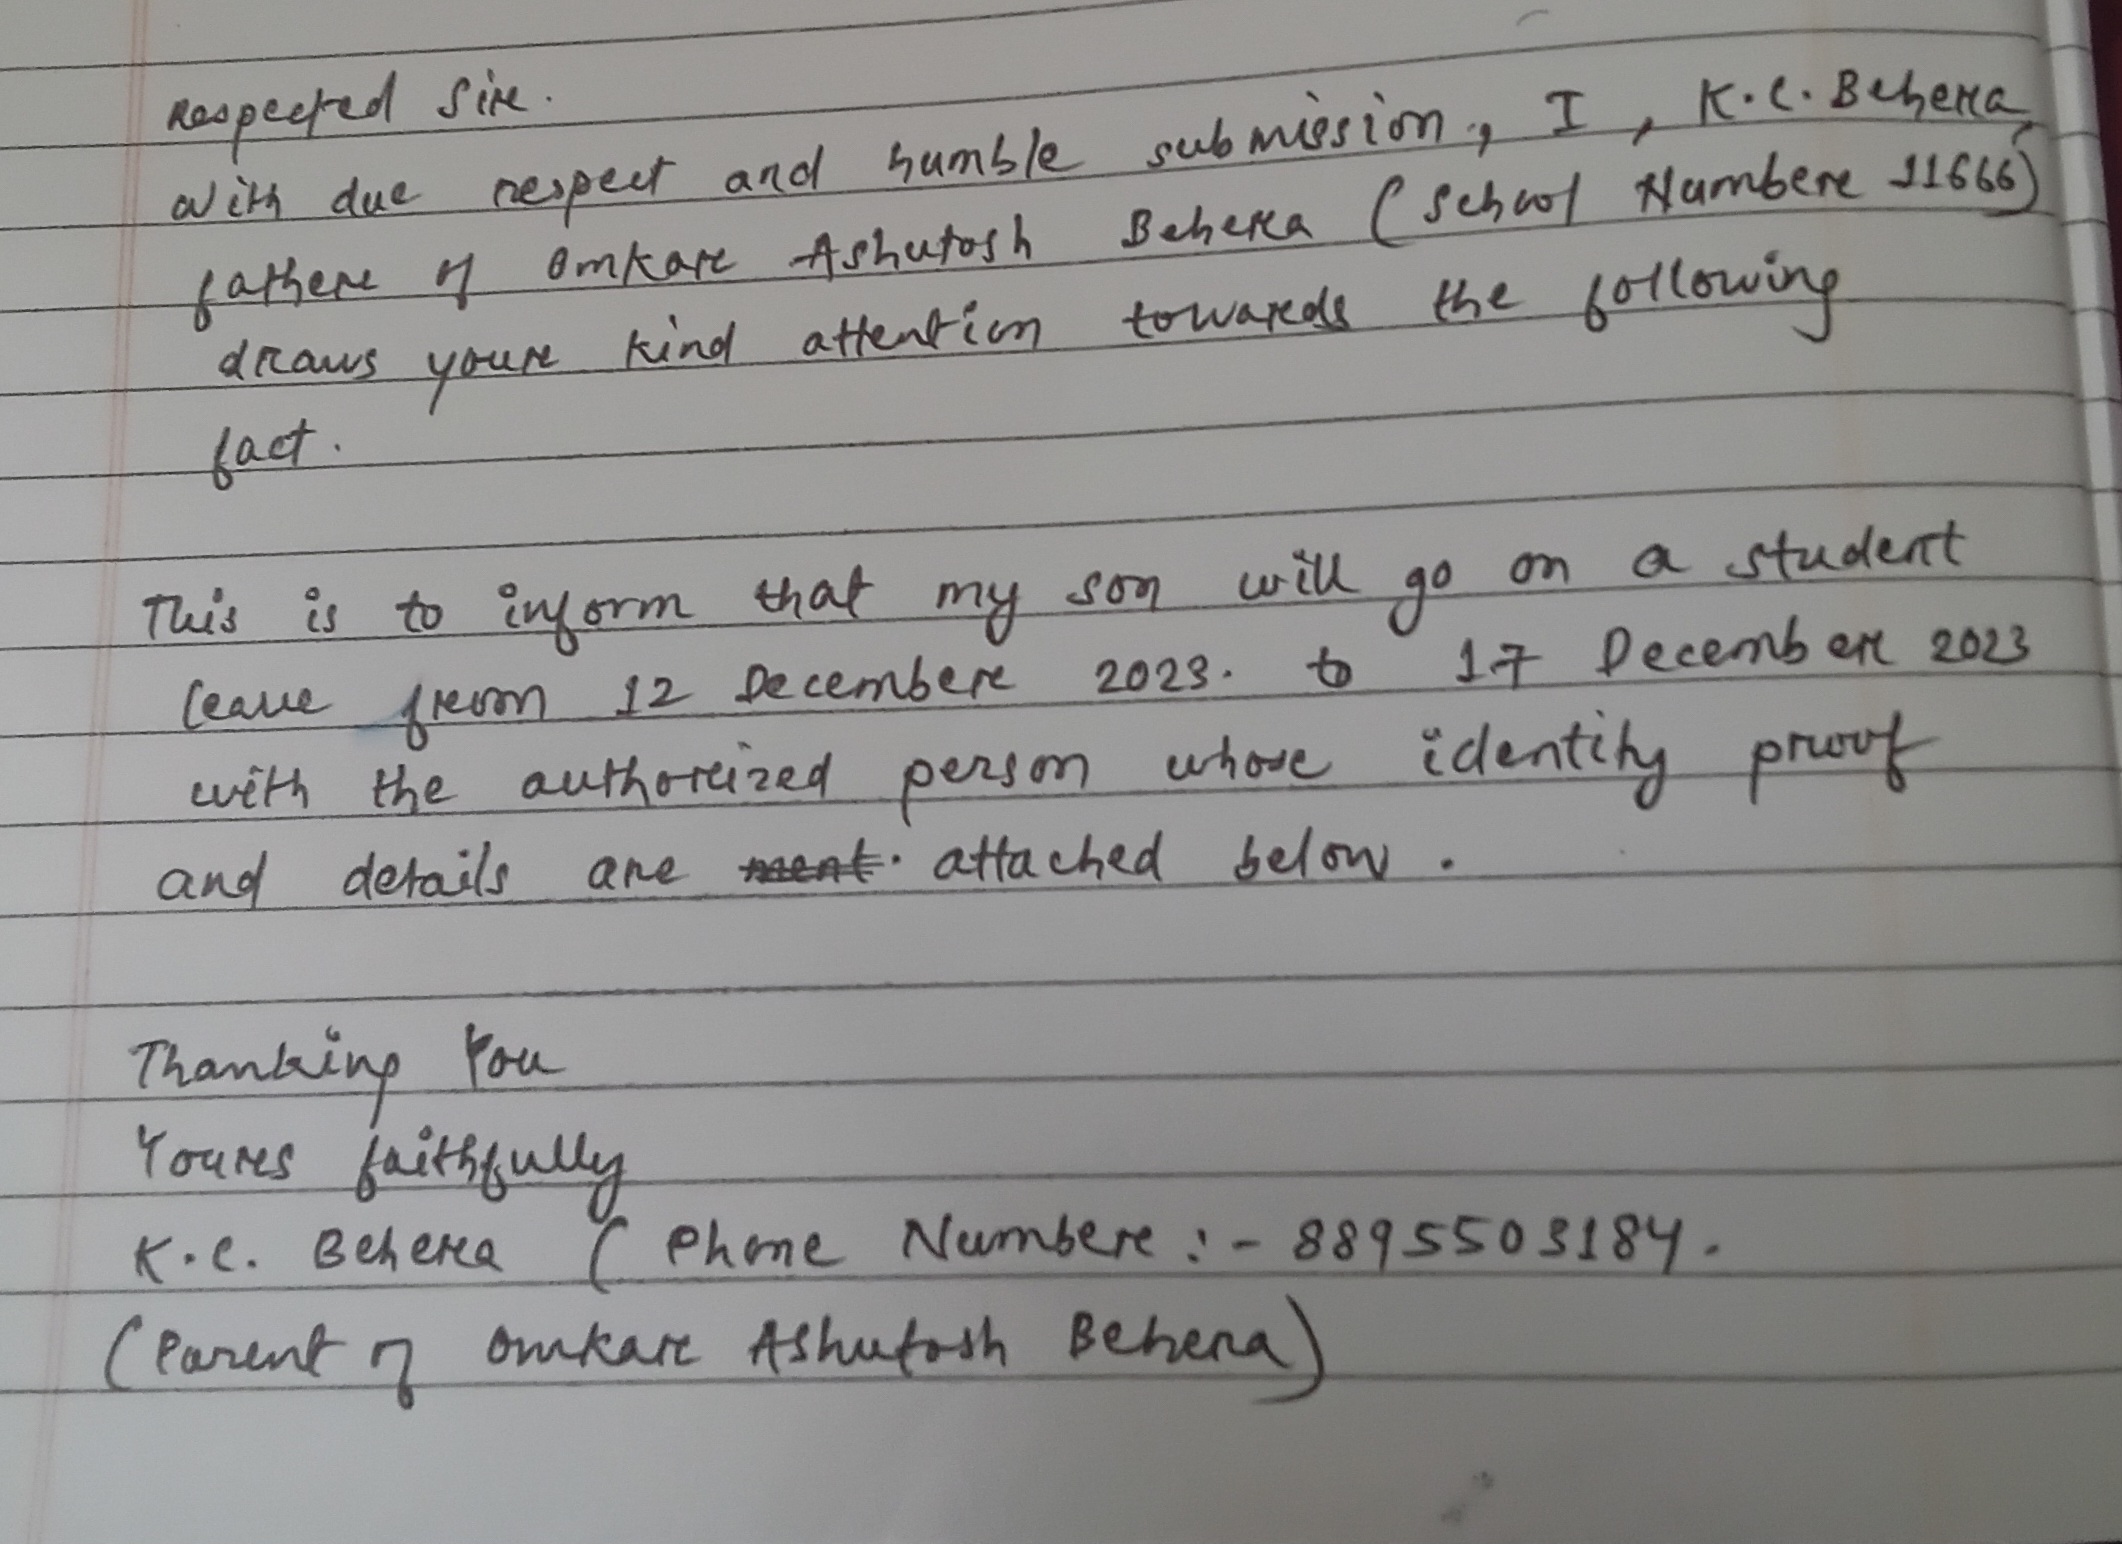 Respected Sir.
With due respect and humble submission, I, K.C. Behera,
father of Omkar Ashutosh Behera (School Number 11666)
draws your kind attention towards the following
fact.
This is to inform that my son will go on a student
leave from 12 December 2023. to 17 December 2023
with the authorized person whose identity proof
and details are ment. attached below.
Thanking You
Yours faithfully
K.C. Behera ( Phone Number :- 8895503184.
(Parent of Omkar Ashutosh Behera)